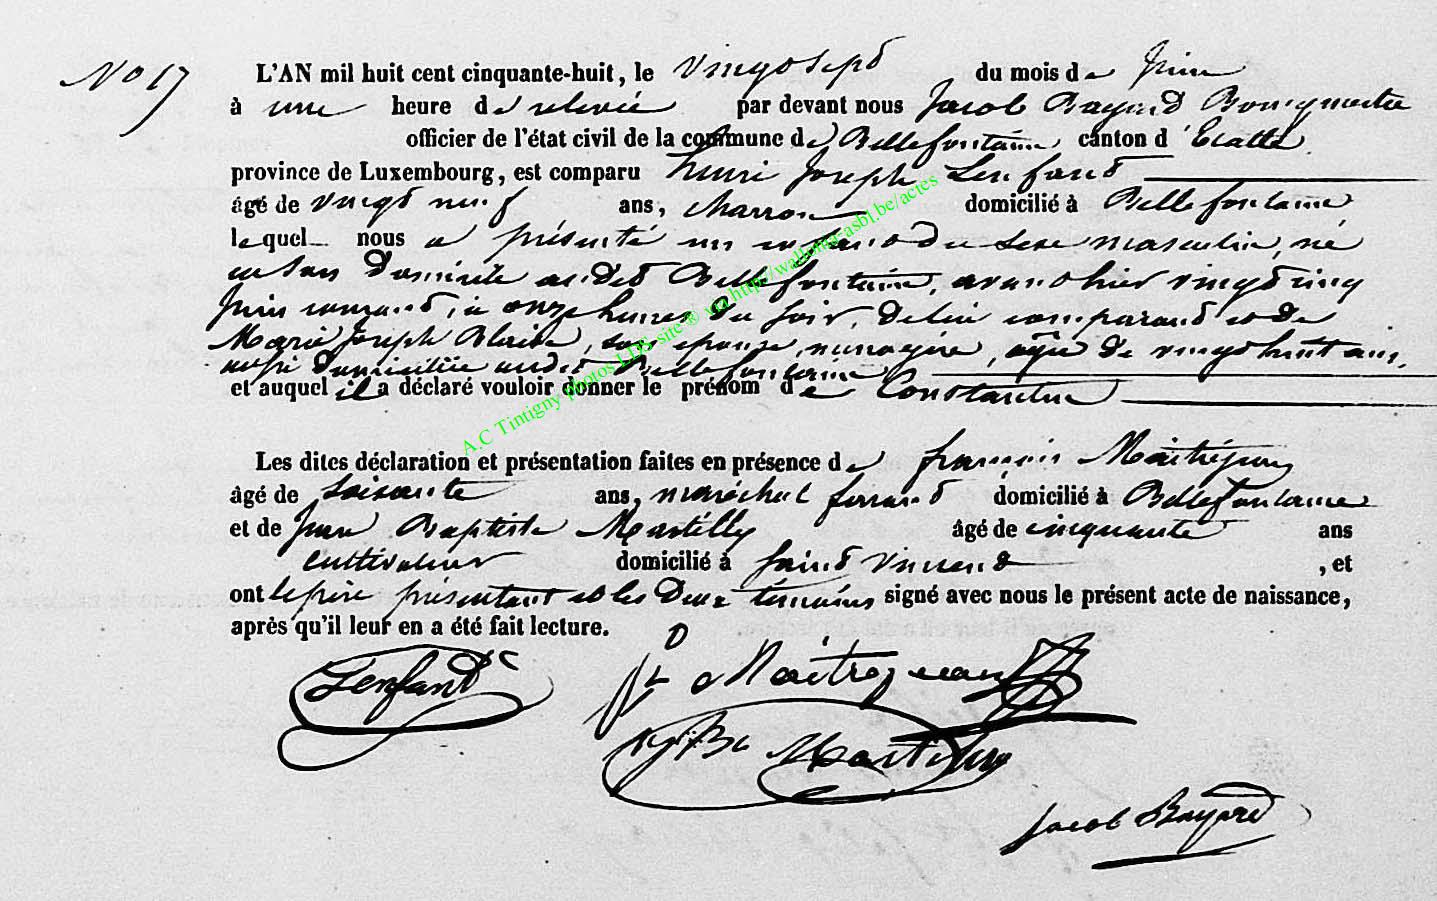 No 17
L'AN mil huit cent cinquante-huit, le vingt sept du mois de Juin
à une heure de relevée par devant nous Jacob Bayard Bourgmestre
officier de l'état civil de la commune de Bellefontaine canton d'Etalle
province de Luxembourg, est comparu henri Joseph Lenfant
âgé de vingt neuf ans, charron domicilié à Bellefontaine,
lequel nous a présenté un enfant du sexe masculin, né
en son domicile audit Bellefontaine, avant hier vingt cinq
Juin courant, à onze heures du soir, de lui comparant et de
Marie Joseph Blaise, son épouse, ménagère, agée de vingt huit ans,
aussi domiciliée audit Bellefontaine
et auquel il a déclaré vouloir donner le prénom de Constantin
Les dites déclaration et présentation faites en présence de françois Maitrejean
âgé de soixante ans, maréchal ferrant domicilié à Bellefontaine
et de Jean Baptiste Martilly âgé de cinquante ans
cultivateur domicilié à Saint Vincent, et
ont le père présentant et les deux témoins signé avec nous le présent acte de naissance,
après qu'il leur en a été fait lecture.
Lenfant
Maitrejean
Martilly
Jacob Bayard
A.C Tintigny photos LDS site ® via http://wallonia-asbl.be/actes